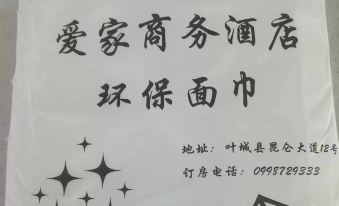 爱家商务酒店
环保面巾
地址：叶城县昆仑大道12号
订房电话：0998729333